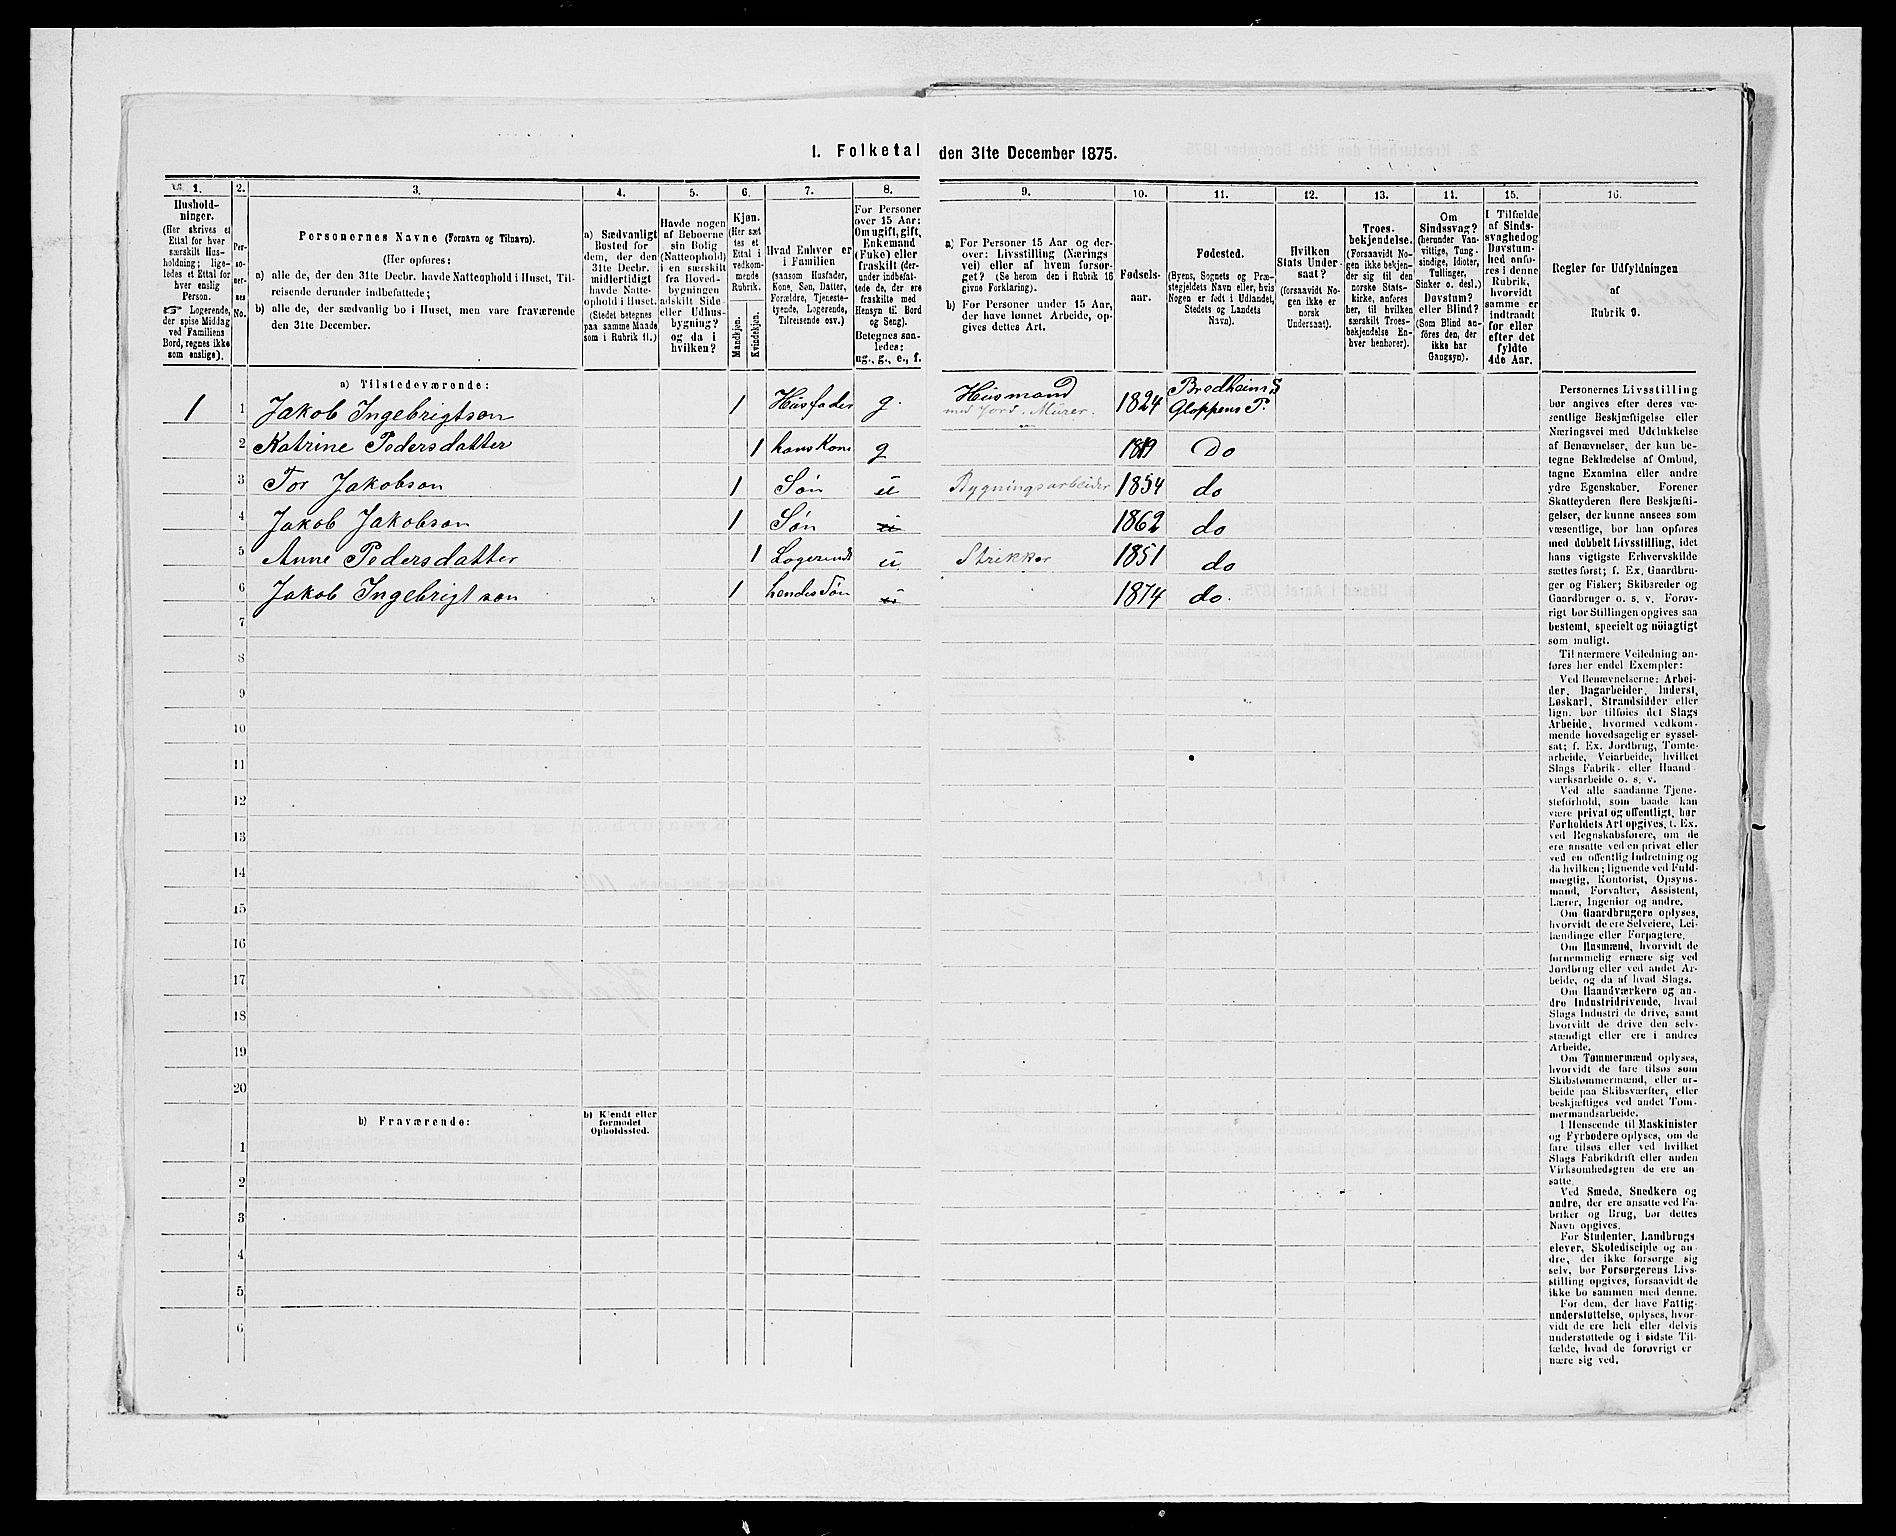 I. Folketal den 31te December 1875.
1. 2. 3. 4. 5. 6. 7. 8. 9. 10. 11. 12. 13. 14. 15. 16.
Hushold-
ninger.
(Her skrives et
Ettal for hver
særskilt Hus-
holdning; lige-
ledes et Ettal for
hver enslig
Person.
☞ Logerende,
der spise Middag
ved Familiens
Bord, regnes ikke
som enslige).
Per-
so-
ner-
nes
No.
Personernes Navne (Fornavn og Tilnavn).
(Her opføres:
a) alle de, der den 31te Decbr. havde Natteophold i Huset, Til-
reisende derunder indbefattede;
b) alle de, der sædvanlig bo i Huset, men vare fraværende
den 31te December.
a) Sædvanligt
Bosted for
dem, der den
31te Decbr.
midlertidigt
havde Natte-
ophold i Huset.
(Stedet betegnes
paa samme Maade
som i Rubrik 11.)
Havde nogen
af Beboerne
sin Bolig
(Natteophold)
i en særskilt
fra Hoved-
bygningen
adskilt Side-
eller Udhus-
bygning?
og da i
hvilken?
Kjøn.
(Her sæt
tes et
Ettal i
vedkom-
mende
Rubrik.
Mandkjøn.
Kvindekjøn.
Hvad Enhver er
i Familien
(saasom Husfader,
Kone, Søn, Datter,
Forældre, Tjeneste-
tyende, Logerende,
Tilreisende osv.)
For Personer
over 15 Aar:
Om ugift, gift,
Enkemand
(Enke) eller
fraskilt (der-
under indbefat-
tede de, der ere
fraskilte med
Hensyn til Bord
og Seng).
Betegnes saa-
ledes:
ug., g., e., f.
a) For Personer 15 Aar og der-
over: Livsstilling (Nærings
vei) eller af hvem forsør-
get? (Se herom den i Rubrik 16
givne Forklaring).
b) For Personer under 15 Aar,
der have lønnet Arbeide, op-
gives dettes Art.
Fødsels-
aar.
Fødested.
(Byens, Sognets og Præ-
stegjeldets Navn eller, hvis
Nogen er født i Udlandet,
Stedets og Landets
Navn).
Hvilken
Stats Under
saat?
(forsaavidt No-
gen ikke er
norsk
Undersaat).
Troes-
bekjendelse.
(Forsaavidt No-
gen ikke bekjen-
der sig til den
norske Stats-
kirke, anføres
her, til hvilken
særskilt Troes-
bekjendelse En-
hver henhører).
Om
Sindssvag?
(herunder Van-
vittige, Tung-
sindige, Idioter,
Tullinger,
Sinker o. desl.)
Døvstum?
eller Blind?
(Som Blind an-
føres den, der
ikke har
Gangsyn).
I Tilfælde
af Sinds-
svaghed og
Døvstum-
hed anfø-
res i denne
Rubrik,
hvorvidt
samme er
indtraadt
før eller
efter det
fyldte
4de Aar.
Regler for Udfyldningen
af
Rubrik 9.
a) Tilstedeværende:
1 1 Jakob Ingebrigtson 1 Husfader g. Husmand med Jord. Murer. 1824 Bredheim S Gloppens P.
2 Katrine Pedersdatter 1 hans Kone g 1819 Do
3 Tor Jakobson 1 Søn u Bygningsarbeider 1854 do
4 Jakob Jakobson 1 Søn u 1862 do
5 Anne Pedersdatter 1 Logerende u Strikker 1851 do
6 Jakob Ingebrigtson 1 hendes Søn u 1874 do.
7
8
9
10
11
12
13
14
15
16
17
18
19
20
b) Fraværende:
b) Kjendt eller
formodet
Opholdssted.
1
2
3
4
5
6
Personernes Livsstilling
bør angives efter deres væ-
sentlige Beskjæftigelse eller
Næringsvei med Udelukkelse
af Benævnelser, der kun be-
tegne Beklædelse af Ombud,
tagne Examina eller andre
ydre Egenskaber. Forener
Skatteyderen flere Beskjæfti-
gelser, der kunne ansees som
væsentlige, bør han opføres
med dobbelt Livsstilling, idet
hans vigtigste Erhvervskilde
sættes først; f. Ex. Gaardbru-
ger og Fisker; Skibsreder og
Gaardbruger o. s. v. Forøv-
rigt bør Stillingen opgives saa
bestemt, specielt og nøiagtigt
som muligt.
Til nærmere Veiledning an-
føres her endel Exempler:
Ved Benævnelserne: Arbei-
der, Dagarbeider, Inderst,
Løskarl, Strandsidder eller
lign. bør tilføies det Slags
Arbeide, hvormed vedkom-
mende hovedsagelig er syssel-
sat; f. Ex. Jordbrug, Tomte-
arbeide, Veiarbeide, hvilket
Slags Fabrik- eller Haand
værksarbeide o. s. v.
Ved alle saadanne Tjene-
steforhold, som baade kan
være privat og offentligt, bør
Forholdets Art opgives, f. Ex.
ved Regnskabsførere, om de
ere ansatte ved en privat eller
ved en offentlig Indretning og
da hvilken; lignende ved Fuld-
mægtig, Kontorist, Opsyns-
mand, Forvalter, Assistent,
Lærer, Ingeniør og andre.
Om Gaardbrugere oplyses,
hvorvidt de ere Selveiere, Lei-
lændinge eller Forpagtere.
Om Husmænd, hvorvidt de
fornemmelig ernære sig ved
Jordbrug eller ved andet Ar-
beide, og da af hvad Slags.
Om Haandværkere og an-
dre Industridrivende, hvad
Slags Industri de drive, samt
hvorvidt de drive den selv-
stændigt eller ere i andres
Arbeide.
Om Tømmermænd oplyses,
hvorvidt de fare tilsøs som
Skibstømmermænd, eller ar-
beide paa Skibsværfter, eller
beskjæftiges ved andet Tøm-
mermandsarbeide.
I Henseende til Maskinister
og Fyrbødere oplyses, om de
fare tilsøs eller ved hvilket
Slags Fabrikdrift eller anden
Virksomhedsgren de ere an-
satte.
Ved Smede, Snedkere og
andre, der ere ansatte ved Fa-
briker og Brug, bør dettes
Navn opgives.
For Studenter, Landbrugs
elever, Skoledisciple og an-
dre, der ikke forsørge sig
selv, bør Forsørgerens Livs-
stilling opgives, forsaavidt de
ikke bo sammen med denne.
For dem, der have Fattig-
understøttelse, oplyses, hvor-
vidt de ere helt eller delvis
understøttede og i sidste Til-
fælde, hvad de forøvrigt er
nære sig ved.